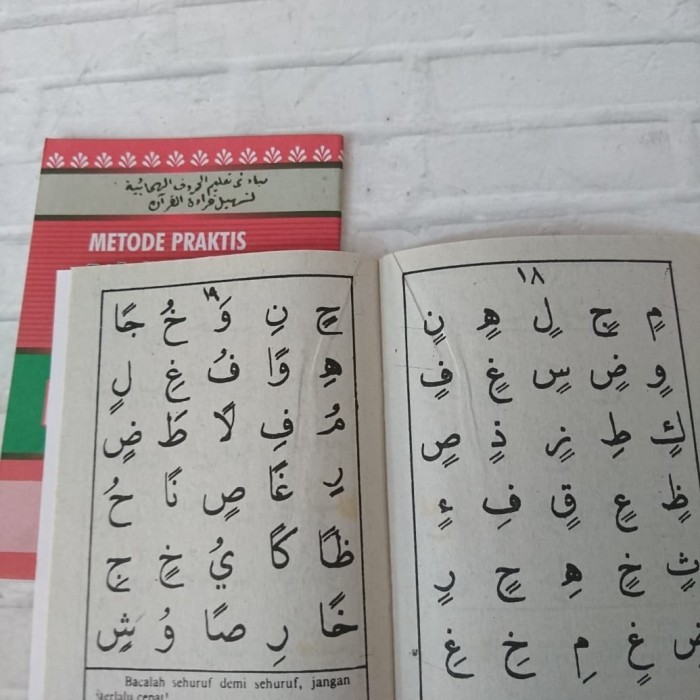 مبادئ تعليم الحروف الهجائية
لتسهيل قراءة القرآن
METODE PRAKTIS
١٨
مٍ جٍ لٍ هٍ نٍ
وٍ ضٍ سٍ غٍ فٍ
كٍ طٍ زٍ ذٍ صٍ
ظٍ عٍ قٍ فٍ ءٍ
ثٍ خٍ هٍ حٍ رٍ
غٍ مٍ خٍ غٍ
١٩
جٍ نِ وَ خُ جًا
هٍ وًا فُ غٍ لٍ
مُ فٍ لًا طَ ضٍ
رِ غًا صٍ نًا حُ
ظًا كًا يُ خٍ جٍ
خًا رِ صًا وُ شٍ
Bacalah sehuruf demi sehuruf, jangan
terlalu cepat!